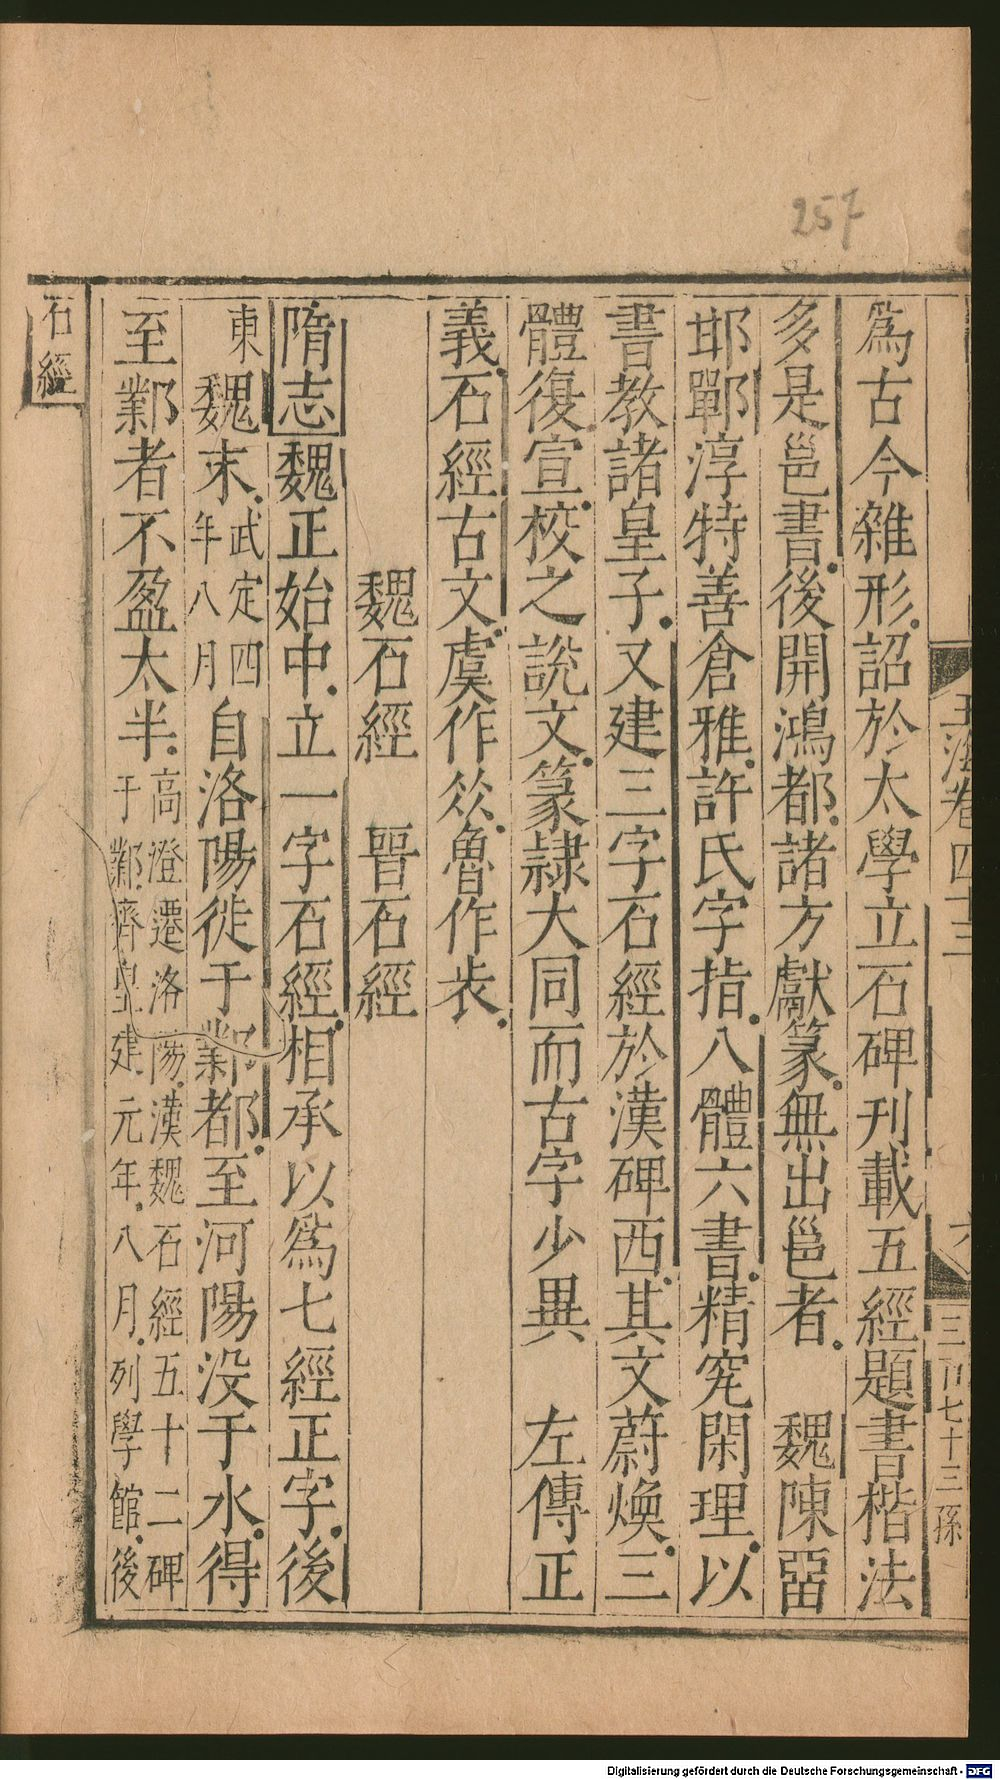 257
玉海卷四十三
六
三百七十三孫
爲古今雜形詔於太學立石碑刊載五經題書楷法
多是邕書後開鴻都諸方獻篆無出邕者　魏陳畱
邯鄲淳特善倉雅許氏字指八體六書精究閑理以
書教諸皇子又建三字石經於漢碑西其文蔚煥三
體復宣校之說文篆隷大同而古字少異　左傳正
義石經古文虞作㷼魯作𣥐
魏石經　晉石經
隋志魏正始中立一字石經相承以爲七經正字後
東魏末武定四
年八月自洛陽徙于鄴都至河陽没于水得
至鄴者不盈太半高澄遷洛陽漢魏石經五十二碑
于鄴齊皇建元年八月列學館後
石經
Digitalisierung gefördert durch die Deutsche Forschungsgemeinschaft - DFG